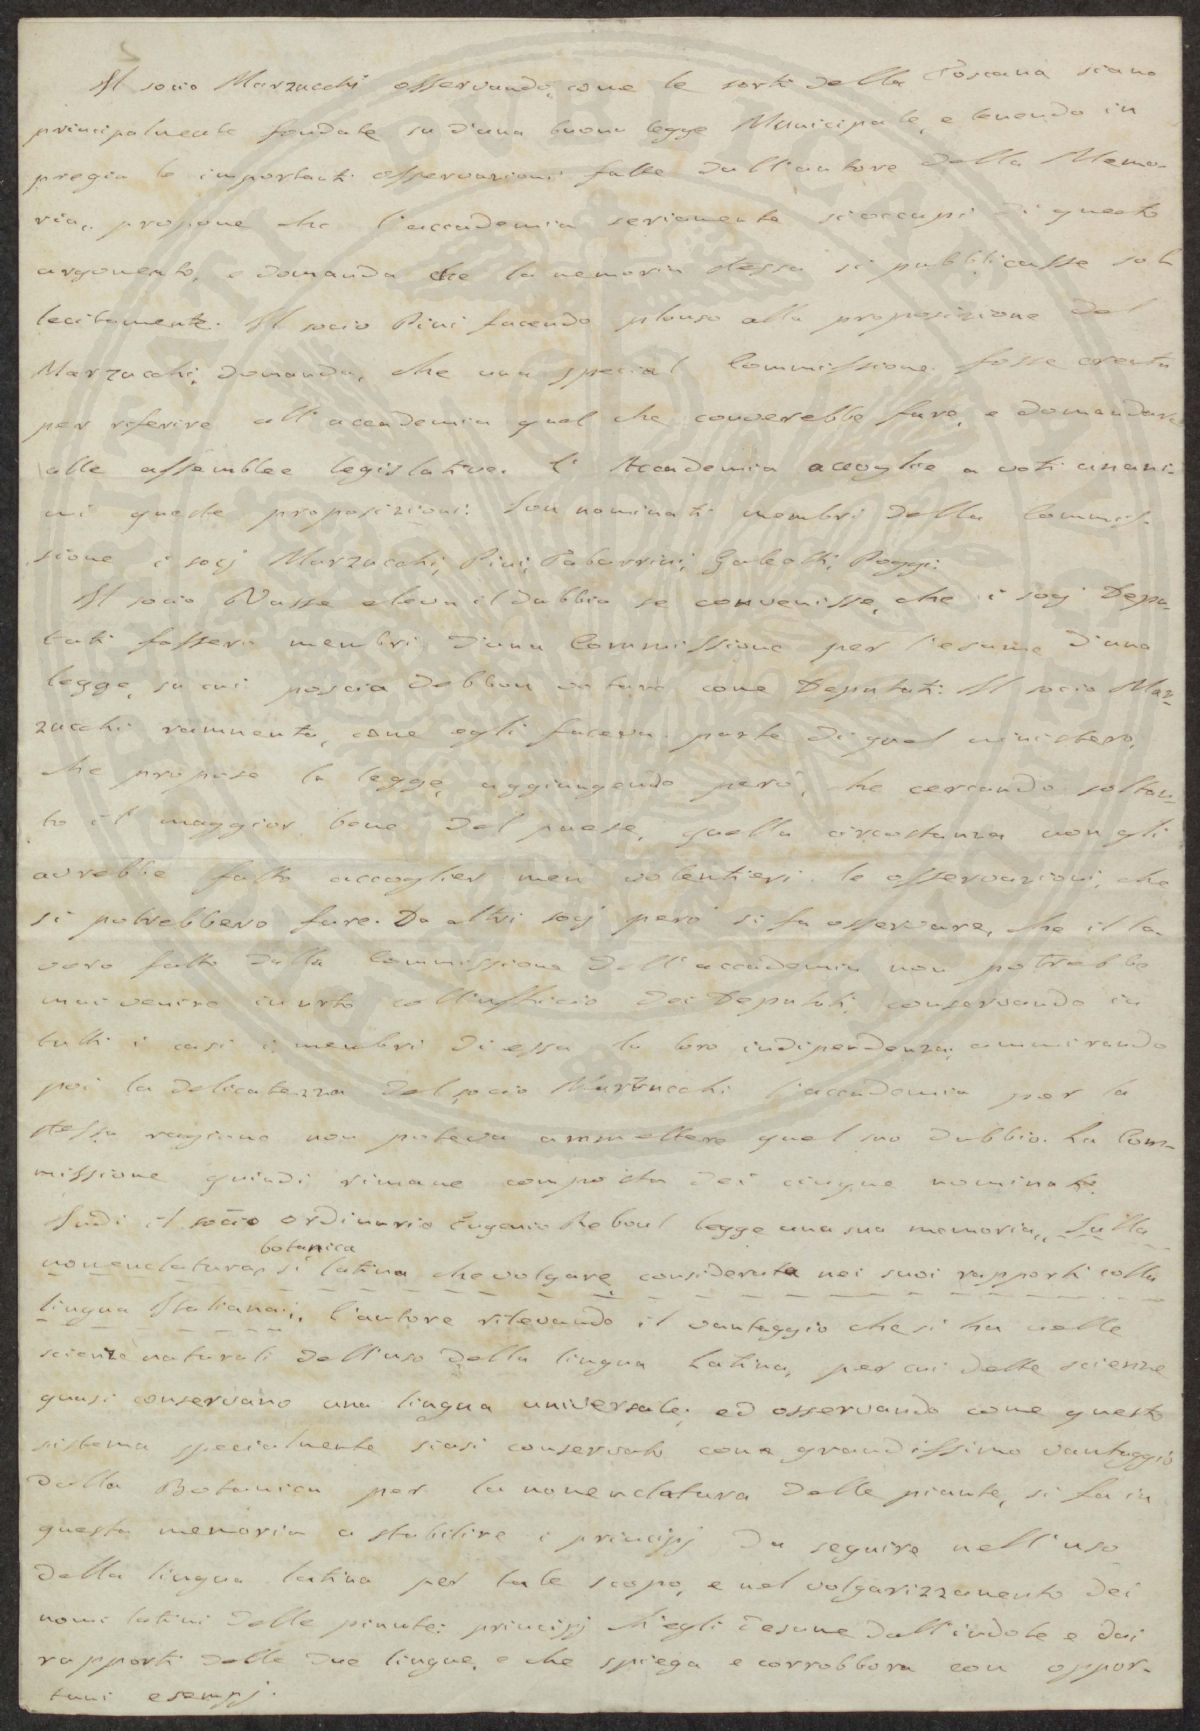 Il socio Marzucchi osservando, come le sorti della Toscana siano
principalmente fondate su d'una buona legge Municipale, e tenendo in
pregio le importanti osservazioni fatte dall'autore della Memo-
ria, propone che l'accademia seriamente si occupi di questo
argomento, e domanda che la memoria stessa si pubblicasse sol
lecitamente. Il socio Pini facendo plauso alla proposizione del
Marzucchi, domanda, che una special Commissione fosse creata
per riferire all'accademia quel che converrebbe fare, e domandare
alle assemblee legislative. L'Accademia accoglie a voti unani-
mi queste proposizioni: Son nominati membri della Commis-
sione i socj Marzucchi, Pini, Tabarrini, Galeotti, Poggi.
Il socio Vasse eleva il dubbio se convenisse, che i socj Depu-
tati fossero membri d'una Commissione per l'esame d'una
legge, su cui poscia debbon votare come Deputati: Il socio Mar-
zucchi rammenta, come egli faceva parte di quel ministero,
che propose la legge, aggiungendo però, che cercando soltan-
to il maggior bene del paese, quella circostanza non gli
avrebbe fatto accoglier men volentieri le osservazioni, che
si potrebbero fare. Da altri socj però si fa osservare, che il la-
voro fatto dalla Commissione dell'accademia non potrebbe
mai venire in urto coll'ufficio dei Deputati, conservando in
tutti i casi i membri di essa la loro indipendenza; ammirando
poi la delicatezza del socio Marzucchi l'accademia per la
stessa ragione non poteva ammettere quel suo dubbio. La Com-
missione quindi rimane composta dei cinque nominati.
Indi il socio ordinario Eugenio Reboul legge una sua memoria „Sulla
botanica
nomenclatura, si latina che volgare, considerata nei suoi rapporti colla
lingua Italiana;„ l'autore rilevando il vantaggio che si ha nelle
scienze naturali dell'uso della lingua Latina, per cui dette scienze
quasi conservano una lingua universale; ed osservando come questo
sistema specialmente siasi conservato con grandissimo vantaggio
dalla Botanica per la nomenclatura delle piante, si fa in
questa memoria a stabilire i principj da seguire nell'uso
della lingua latina per tale scopo, e nel volgarizzamento dei
nomi latini delle piante: principj ch'egli desume dall'indole e dai
rapporti delle due lingue, e che spiega e corrobbora con oppor-
tuni esempj.